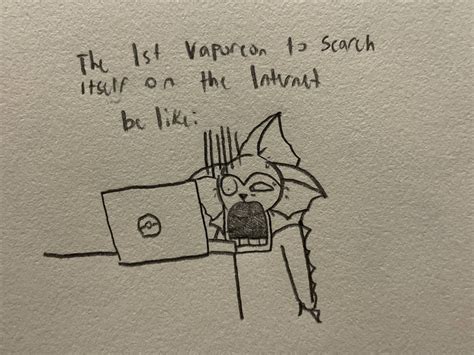 The 1st Vaporeon to search
itself on the Internet
be like: